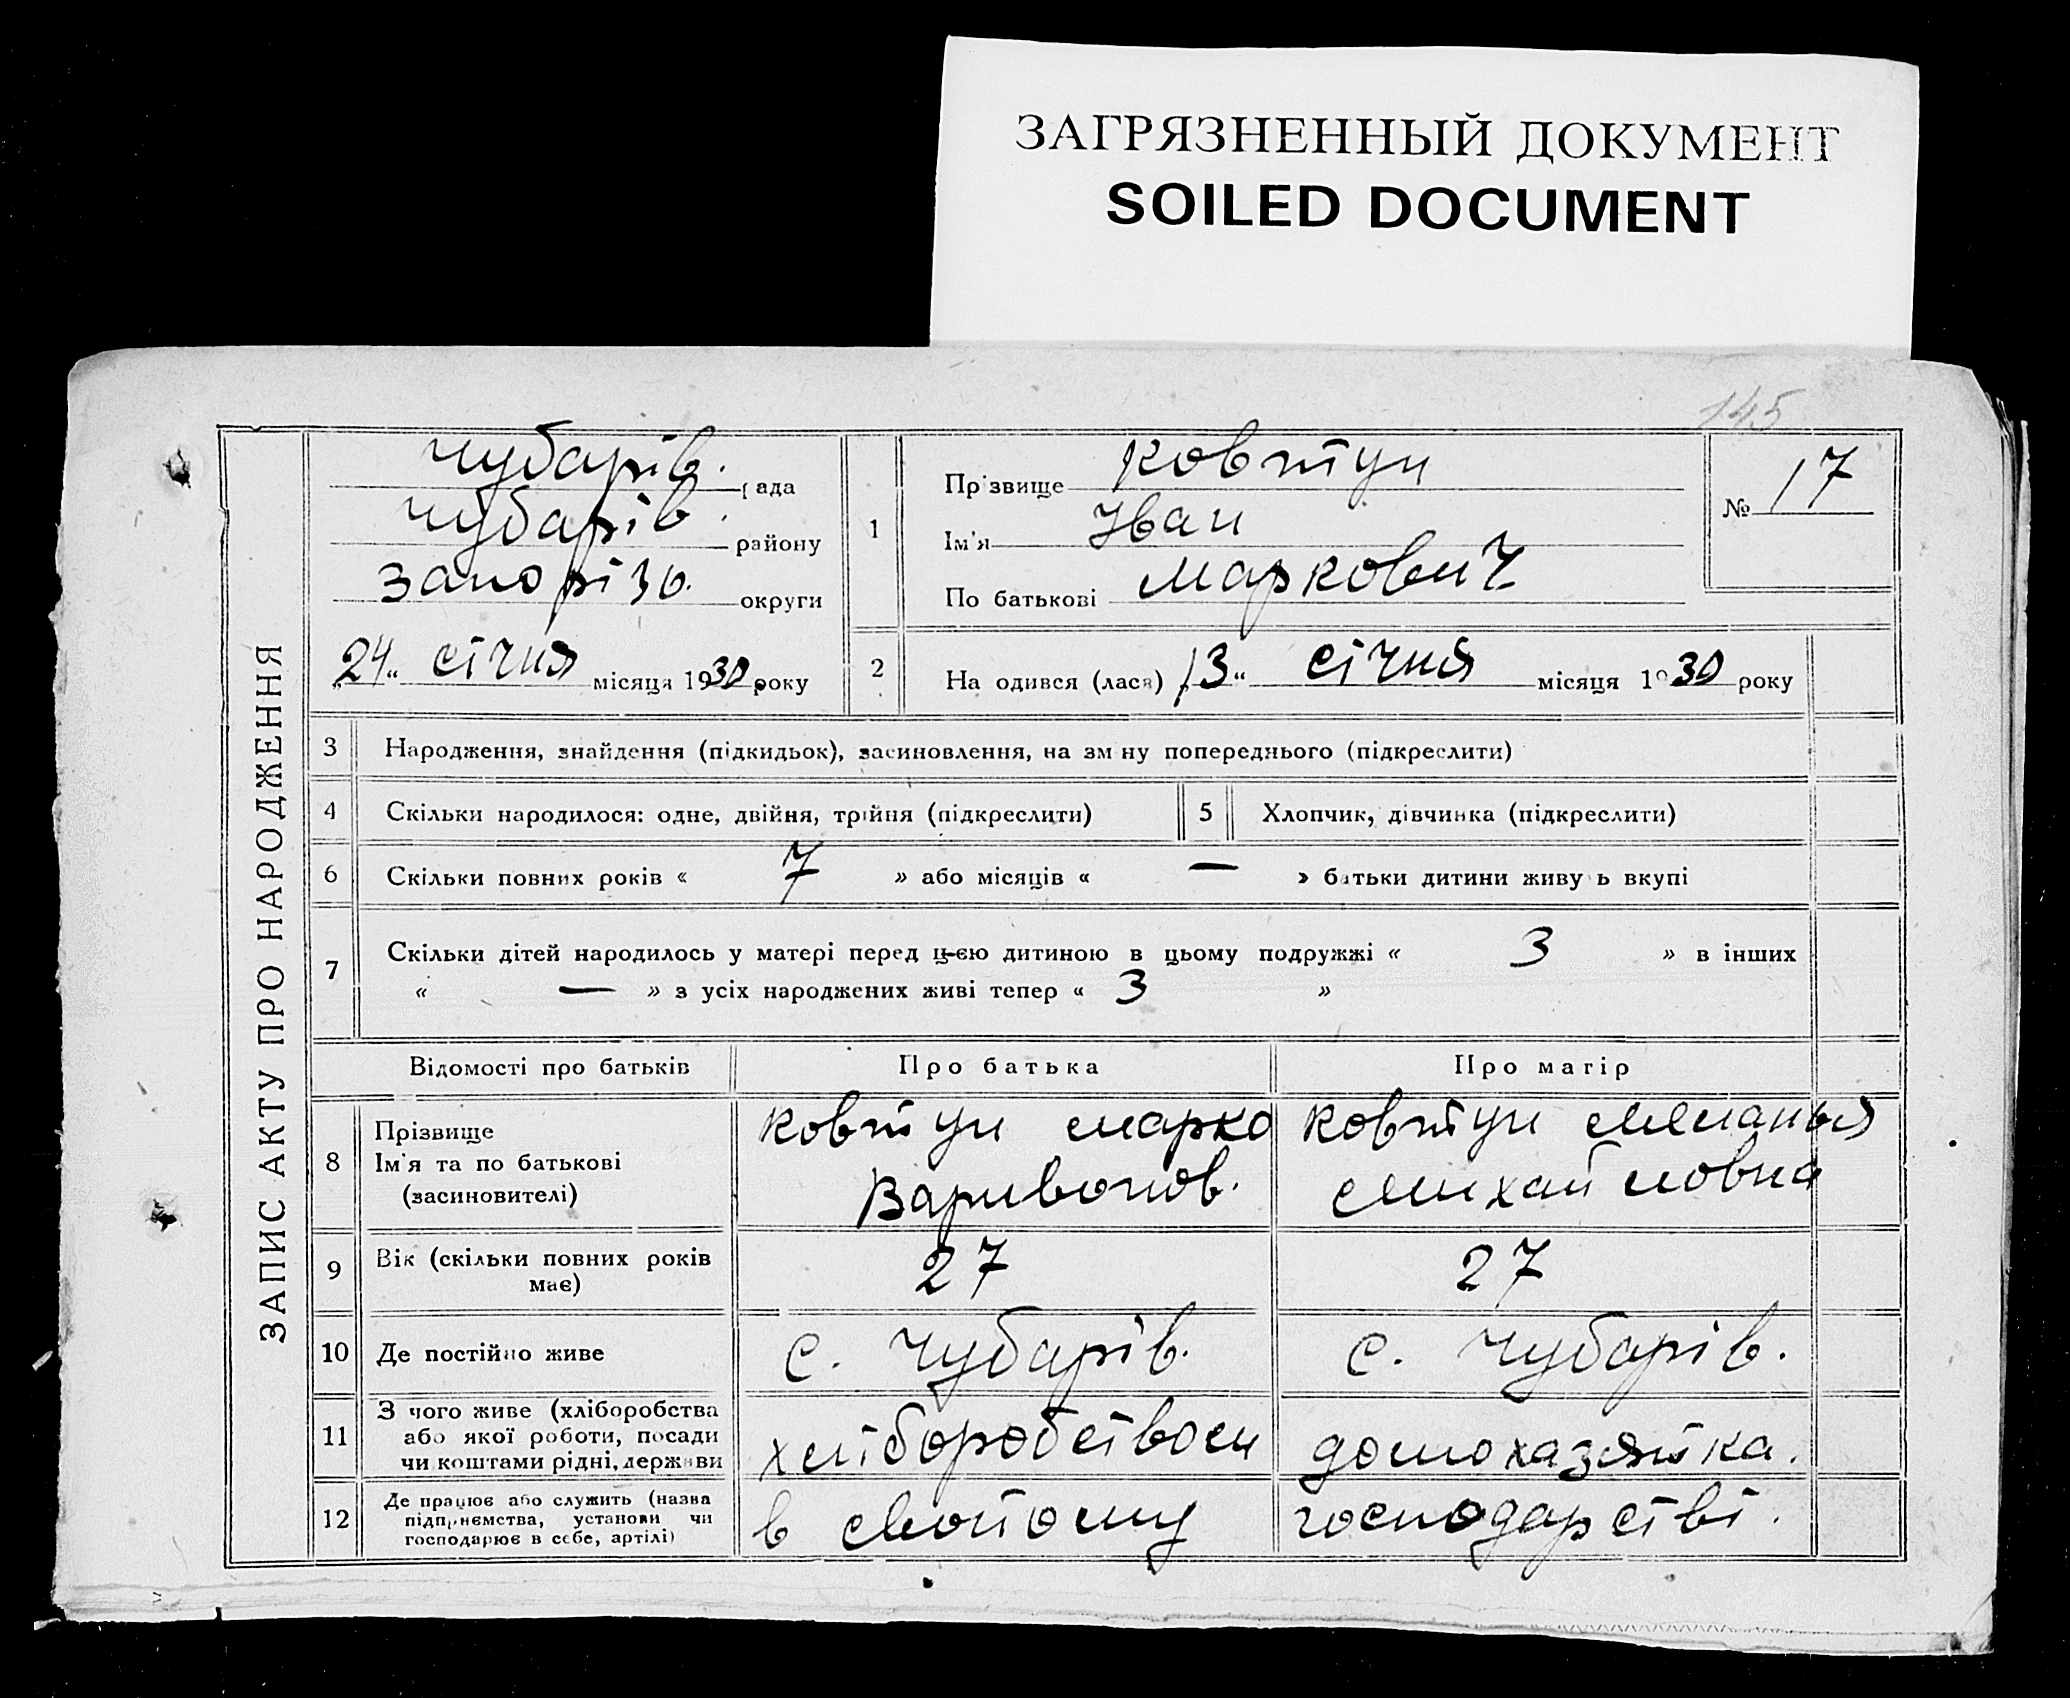 ЗАГРЯЗНЕННЫЙ ДОКУМЕНТ
SOILED DOCUMENT
145
ЗАПИС АКТУ ПРО НАРОДЖЕННЯ
Чубарів. рада
Чубарів. району
Запорізь. округи
„24“ січня місяця 1930 року
1
Прізвище Ковтун
Ім'я Іван
По батькові Маркович
№ 17
2 На одився (лася) „13“ січня місяця 1930 року
3 Народження, знайдення (підкидьок), засиновлення, на зм ну попереднього (підкреслити)
4 Скільки народилося: одне, двійня, трійня (підкреслити) 5 Хлопчик, дівчинка (підкреслити)
6 Скільки повних років « 7 » або місяців « — » батьки дитини живу ь вкупі
7 Скільки дітей народилось у матері перед ц-єю дитиною в цьому подружжі « 3 » в інших
« — » з усіх народжених живі тепер « 3 »
Відомості про батьків Про батька Про матір
8 Прізвище
Ім'я та по батькові
(засиновителі)
Ковтун Марко
Варивонов.
Ковтун
Михайловна
9 Вік (скільки повних років
має)
27 27
10 Де постійно живе с. Чубарів. с. Чубарів.
11 З чого живе (хліборобства
або якої роботи, посади
чи коштами рідні, держави
хліборобством домохазяйка.
12 Де працює або служить (назва
підприємства, установи чи
господарює в себе, артілі)
в своїому господарстві.